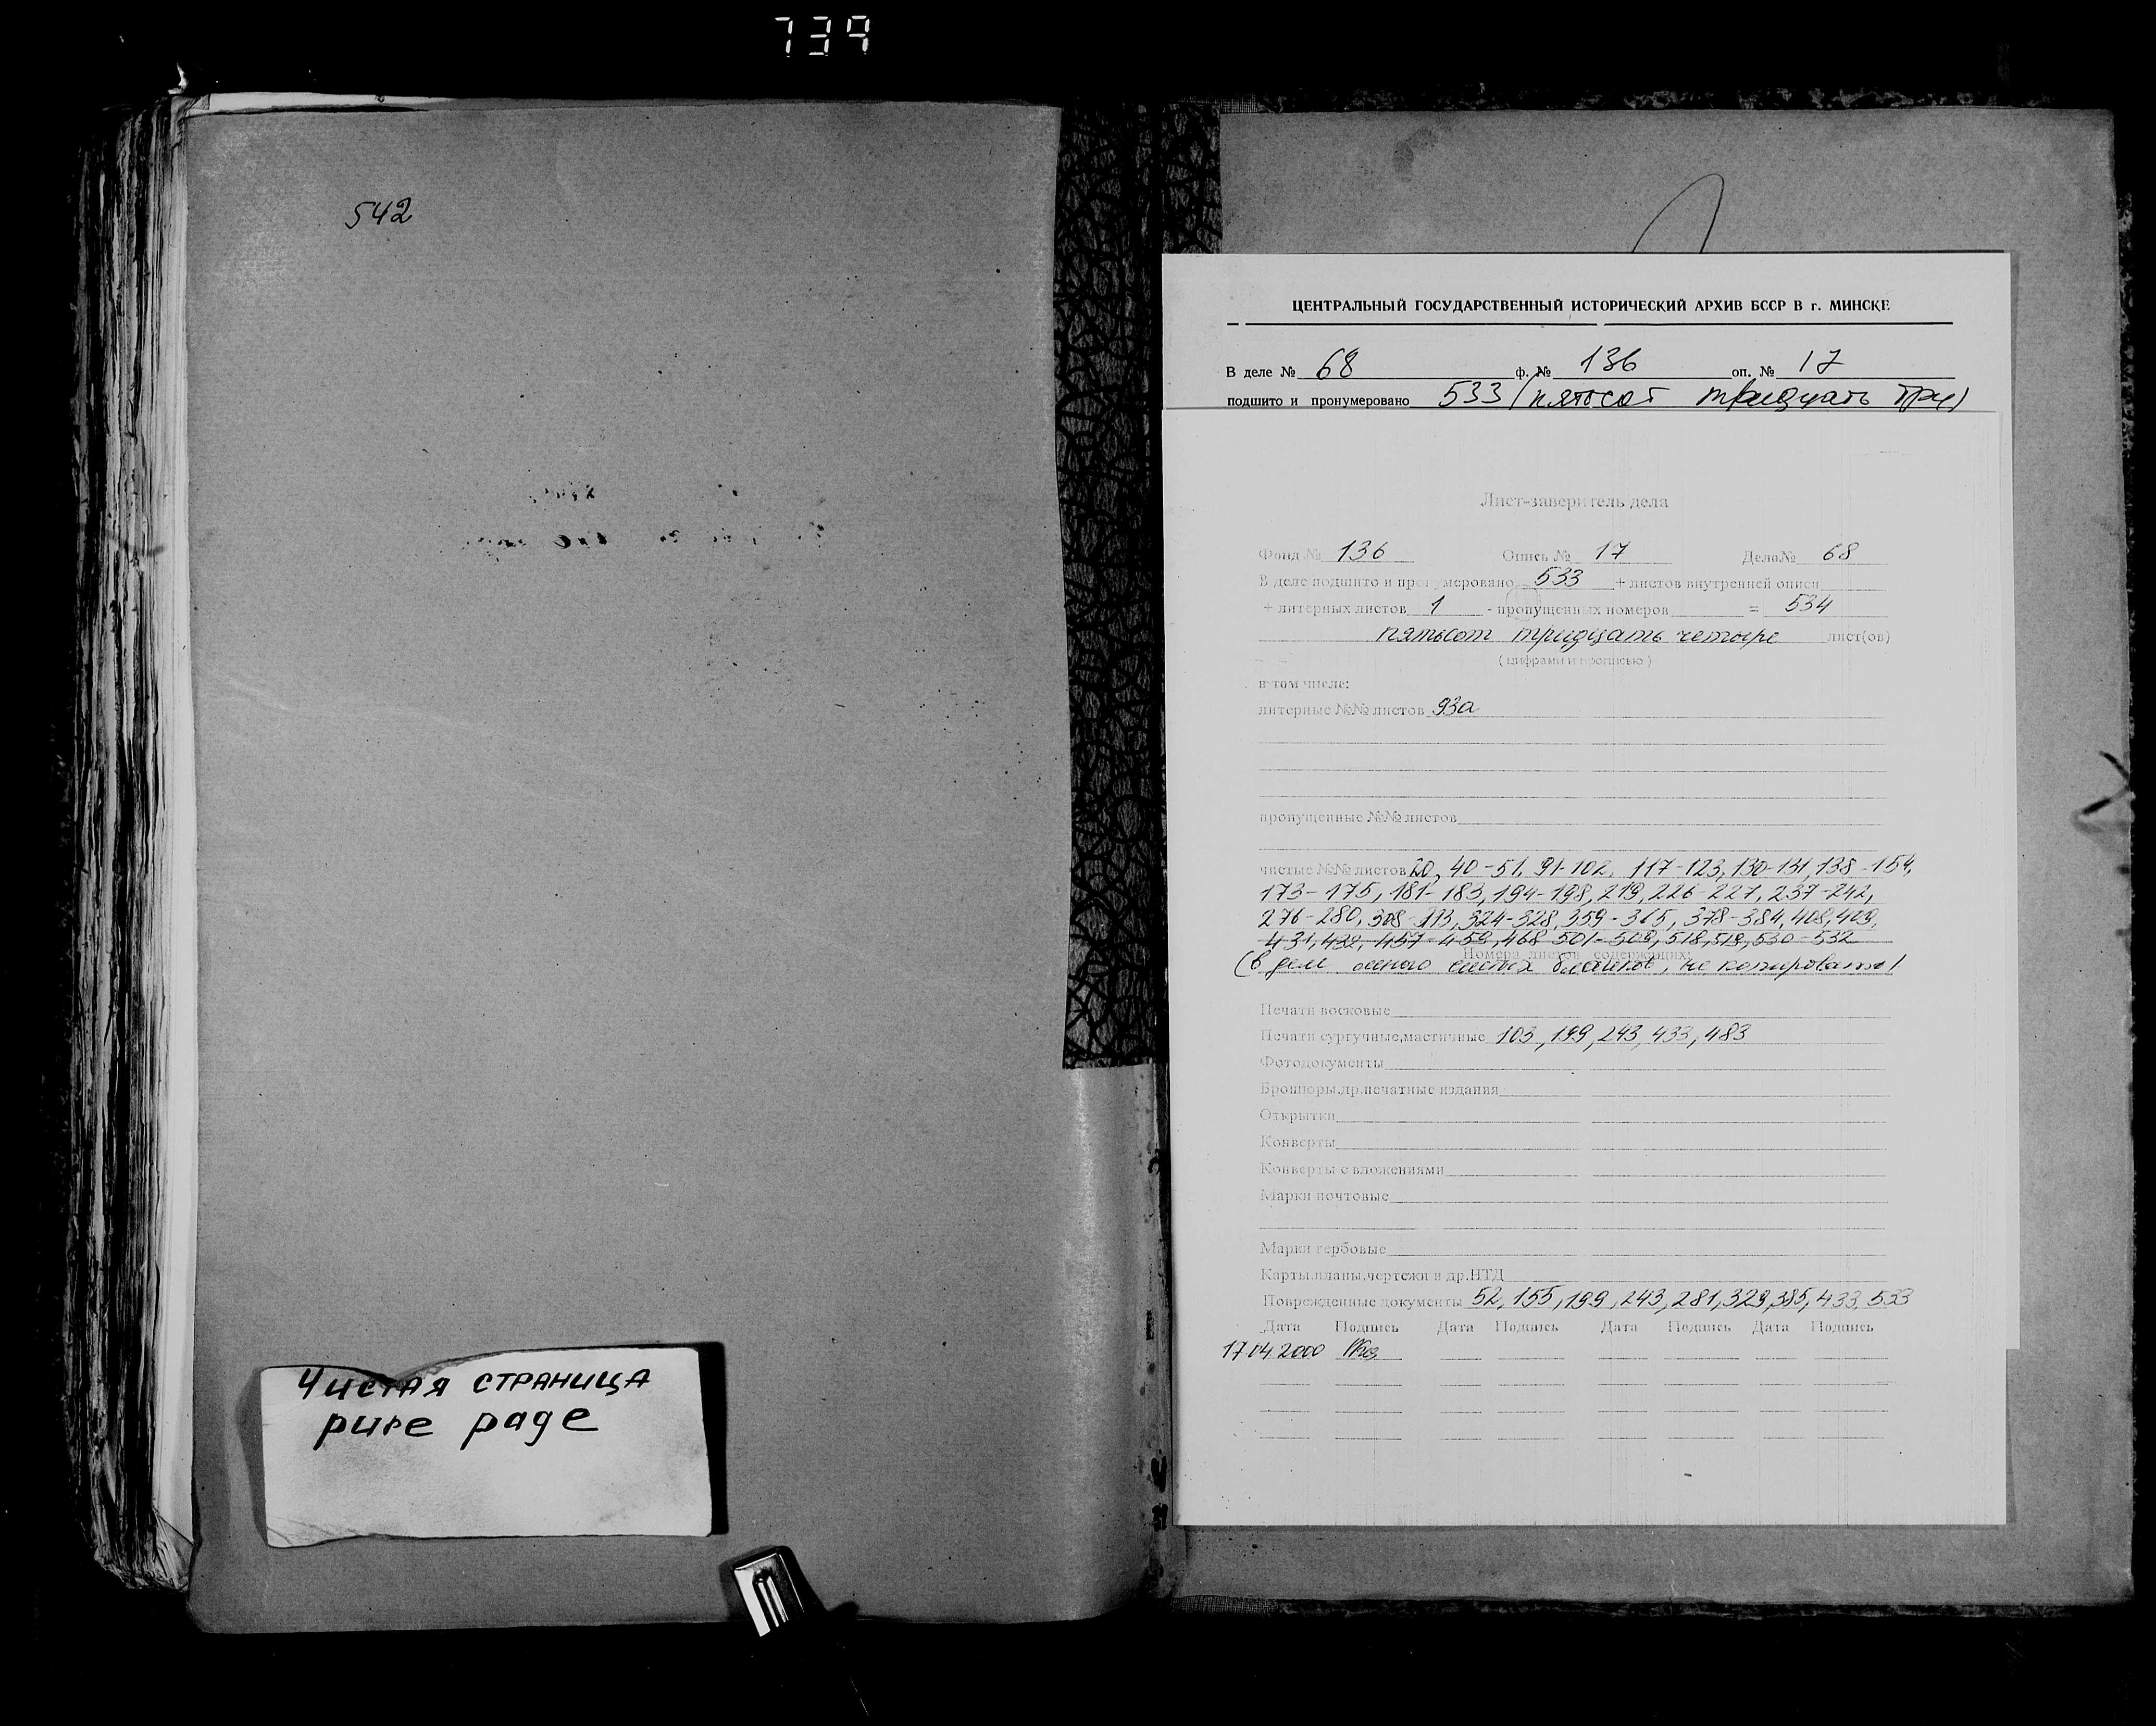 739
542
Чистая страница
pure page
ЦЕНТРАЛЬНЫЙ ГОСУДАРСТВЕННЫЙ ИСТОРИЧЕСКИЙ АРХИВ БССР В г. МИНСКЕ
В деле № 68 ф. № 136 оп. № 17
подшито и пронумеровано 533 (пятьсот тридцать три)
Лист-заверитель дела
Фонд № 136 Опись № 17 Дело № 68
В деле подшито и пронумеровано 533 + листов внутренней описи
+ литерных листов 1 - пропущенных номеров = 534
пятьсот тридцать четыре лист(ов)
(цифрами и прописью)
в том числе:
литерные №№ листов 93а
пропущенные №№ листов
чистые №№ листов 20, 40-51, 91-102, 117-123, 130-131, 138-154,
173-175, 181-183, 194-198, 219, 226-227, 237-242,
276-280, 308-313, 324-328, 359-365, 378-384, 408, 429,
431, 432, 457-459, 468 501-509, 518, 519, 530-532
Номера листов содержащих:
(в деле много чистых бланков, не копировать)
Печати восковые
Печати сургучные,мастичные 103, 199, 243, 433, 483
Фотодокументы
Брошюры,др.печатные издания
Открытки
Конверты
Конверты с вложениями
Марки почтовые
Марки гербовые
Карты,планы,чертежи и др.НТД
Поврежденные документы 52, 155, 199, 243, 281, 329, 385, 433, 533
Дата Подпись Дата Подпись Дата Подпись Дата Подпись
17.04.2000